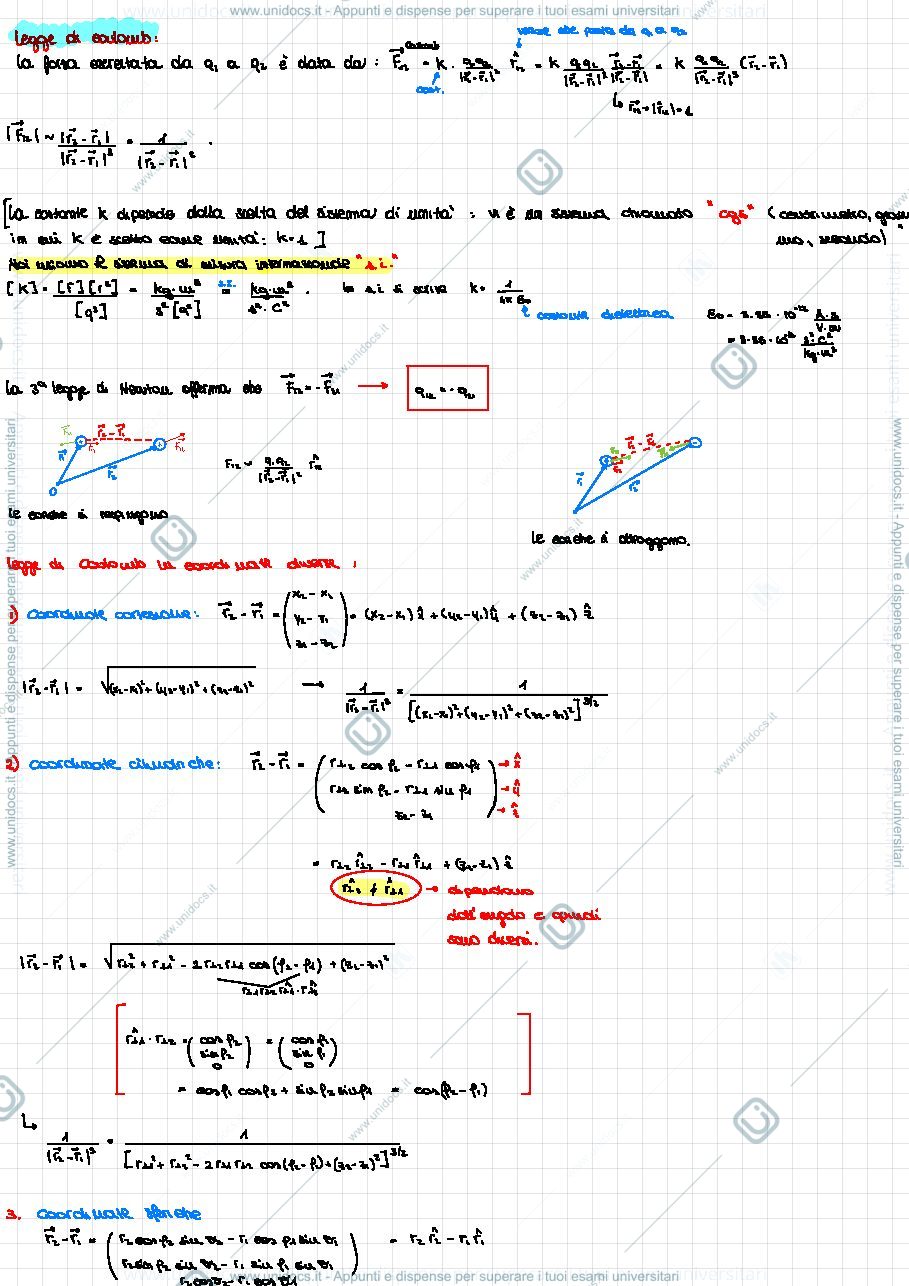 www.unidocs.it - Appunti e dispense per superare i tuoi esami universitari
Legge di Coulomb:
versore che punta da q₁ a q₂
La forza esercitata da q₁ a q₂ è data da: F⃗₁₂ = k · q₁q₂/|r⃗₂-r⃗₁|² r̂₁₂ = k q₁q₂/|r⃗₂-r⃗₁|² r⃗₂-r⃗₁/|r⃗₂-r⃗₁| = k q₁q₂/|r⃗₂-r⃗₁|³ (r⃗₂-r⃗₁)
Coulomb
cost.
|F⃗₁₂| ~ |r⃗₂-r⃗₁|/|r⃗₂-r⃗₁|³ = 1/|r⃗₂-r⃗₁|² .
[La costante k dipende dalla scelta del sistema di unità: vi è un sistema chiamato "cgs" (centimetro, grammo, secondo)
in cui k è scelto come unità: k=1]
Noi usiamo il sistema di misura internazionale "s.i."
[k] = [F][r²]/[q²] = kg·m³/s²[q²] = kg·m³/s²·C² . In s.i si scrive k = 1/4πε₀
s.I.
costante dielettrica
La 3ª legge di Newton afferma che F⃗₁₂ = -F⃗₂₁ →
F₁₂ ~ q₁q₂/|r⃗₂-r⃗₁|² r̂₁₂
r⃗₂-r⃗₁
r⃗₁
r⃗₂
O
r⃗₁
r⃗₂
Le cariche si respingono
Le cariche si attraggono.
Legge di Coulomb in coordinate diverse:
1) Coordinate cartesiane: r⃗₂-r⃗₁ = (x₂-x₁
y₂-y₁
z₁-z₂) = (x₂-x₁) x̂ + (y₂-y₁) ŷ + (z₂-z₁) ẑ
|r⃗₂-r⃗₁| = √(x₂-x₁)²+(y₂-y₁)²+(z₂-z₁)² → 1/|r⃗₂-r⃗₁|³ = 1/[(x₂-x₁)²+(y₂-y₁)²+(z₂-z₁)²]^3/2
2) Coordinate cilindriche: r⃗₂-r⃗₁ = (r⊥₂ cos φ₂ - r⊥₁ cos φ₁ → x̂
r⊥₂ sin φ₂ - r⊥₁ sin φ₁ → ŷ
z₂-z₁) → ẑ
= r⊥₂ r̂⊥₂ - r⊥₁ r̂⊥₁ + (z₂-z₁) ẑ
r̂⊥₂ ≠ r̂⊥₁ → dipendono
dall'angolo e quindi
sono diversi.
|r⃗₂-r⃗₁| = √r⊥₂²+r⊥₁²-2r⊥₂r⊥₁ cos(φ₂-φ₁)+(z₂-z₁)²
r⊥₁r⊥₂ r̂⊥₁·r̂⊥₂
r̂⊥₁·r⊥₂ = (cos φ₂
sin φ₂
0) = (cos φ₁
sin φ₁
0)
= cosφ₁ cosφ₂ + sinφ₂ sinφ₁ = cos(φ₂-φ₁)
↳ 1/|r⃗₂-r⃗₁|³ = 1/[r⊥₁²+r⊥₂²-2r⊥₁r⊥₂ cos(φ₂-φ₁)+(z₂-z₁)²]^3/2
3. Coordinate sferiche
r⃗₂-r⃗₁ = (r₂ cosφ₂ sin θ₂ - r₁ cos φ₁ sin θ₁
r₂ sinφ₂ sin θ₂ - r₁ sin φ₁ sin θ₁
r₂ cosθ₂ - r₁ cos θ₁) = r₂ r̂₂ - r₁ r̂₁
www.unidocs.it - Appunti e dispense per superare i tuoi esami universitari